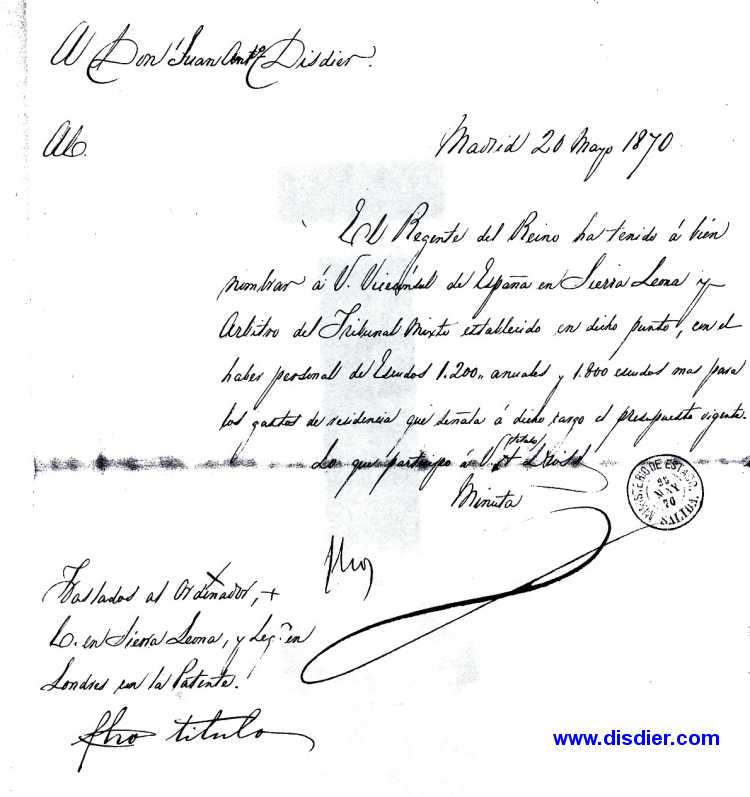 A Don Juan Antº Disdier.
Al.
Madrid 20 Mayo 1870.
El Regente del Reino ha tenido á bien
nombrar á V. Vicecónsul de España en Sierra Leona y
Arbitro del Tribunal Mixto establecido en dicho punto, con el
haber personal de Escudos 1.200,, anuales y 1.800 escudos mas para
los gastos de residencia que señala á dicho cargo el presupuesto vigente.
Lo que participo á V.
título
Minuta
MINISTERIO DE ESTADO.
MAY
70
SALIDA.
fho
Traslados al Ordenador, +
C. en Sierra Leona, y Leg.ⁿ en
Londres con la Patente.
fho titulo
www.disdier.com